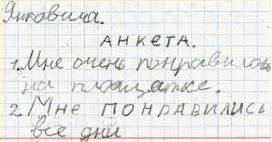 Янковила.
АНКЕТА.
1. Мне очень понравилось
на площатке.
2. Мне понравились
все дни